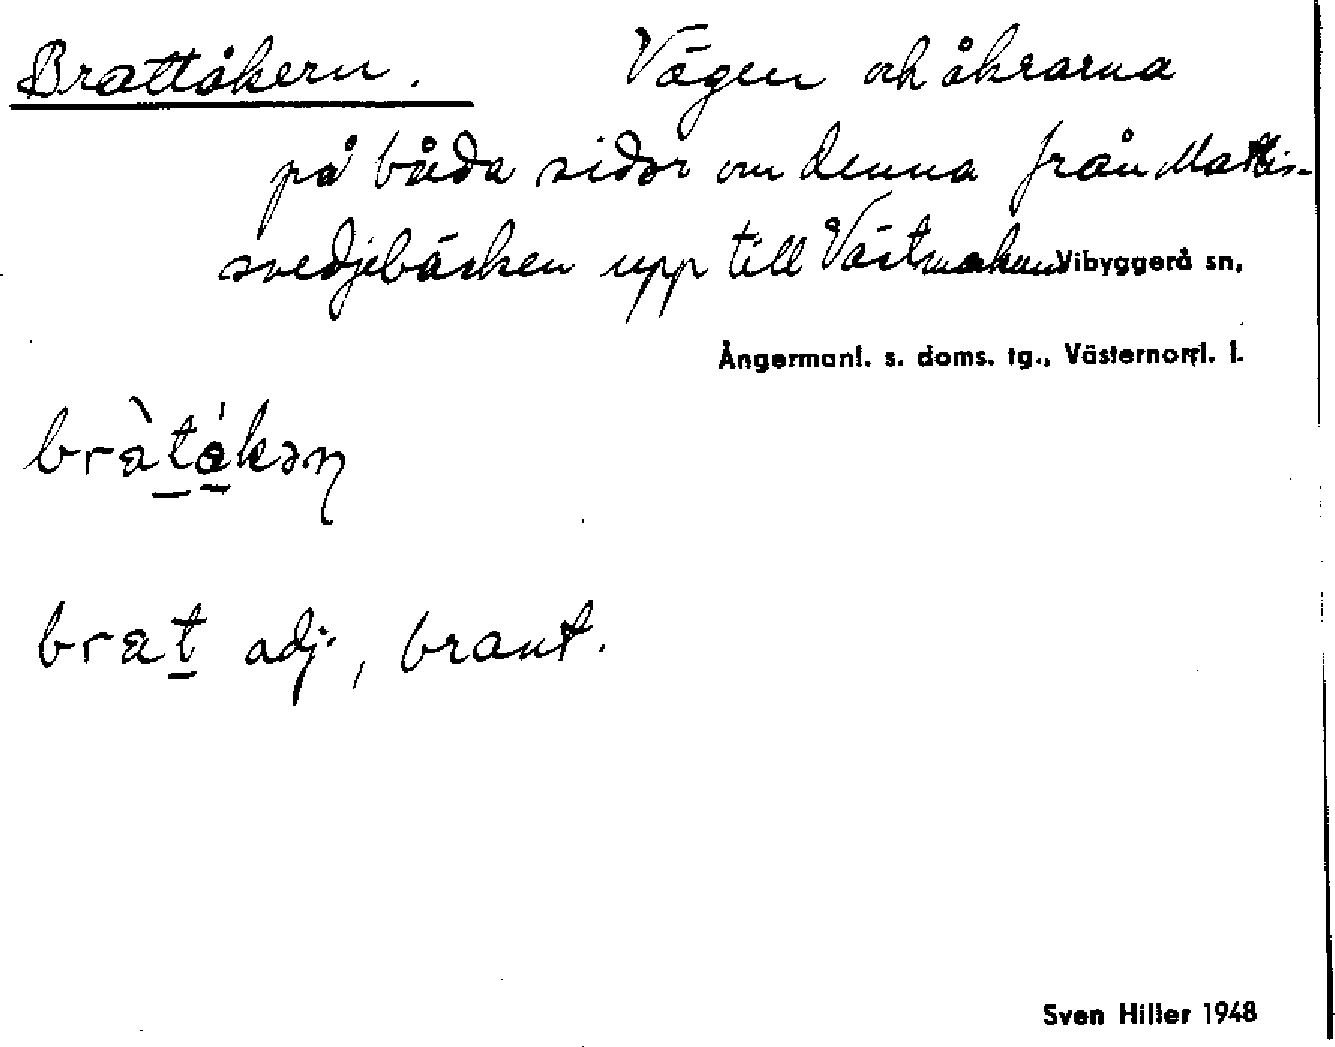 Brattåkern. Vägen och åkrarna
på båda sidor om denna från Mattis-
svedjebäcken upp till Västmarken Vibyggerå sn,
Ångermanl. s. doms. tg., Västernorrl. l.
bràtákəɳ
brat adj., brant.
Sven Hiller 1948